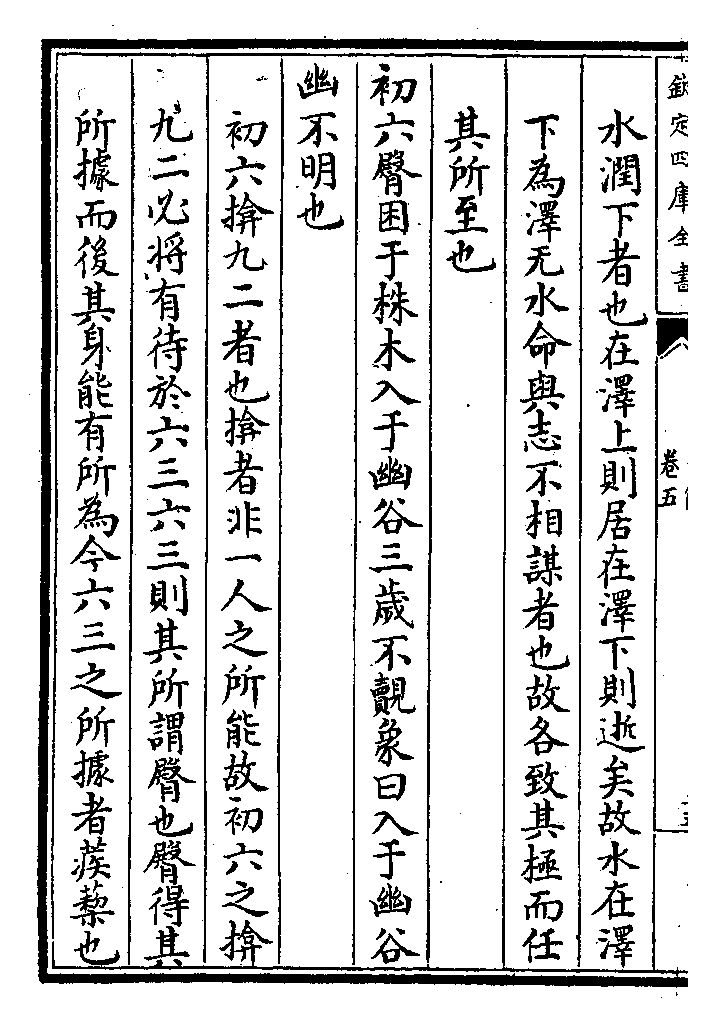 欽定四庫全書
卷五
水潤下者也在澤上則居在澤下則逝矣故水在澤
下為澤无水命與志不相謀者也故各致其極而任
其所至也
初六臀困于株木入于幽谷三歲不覿象曰入于幽谷
幽不明也
初六揜九二者也揜者非一人之所能故初六之揜
九二必將有待於六三六三則其所謂臀也臀得其
所據而後其身能有所為今六三之所據者蒺藜也